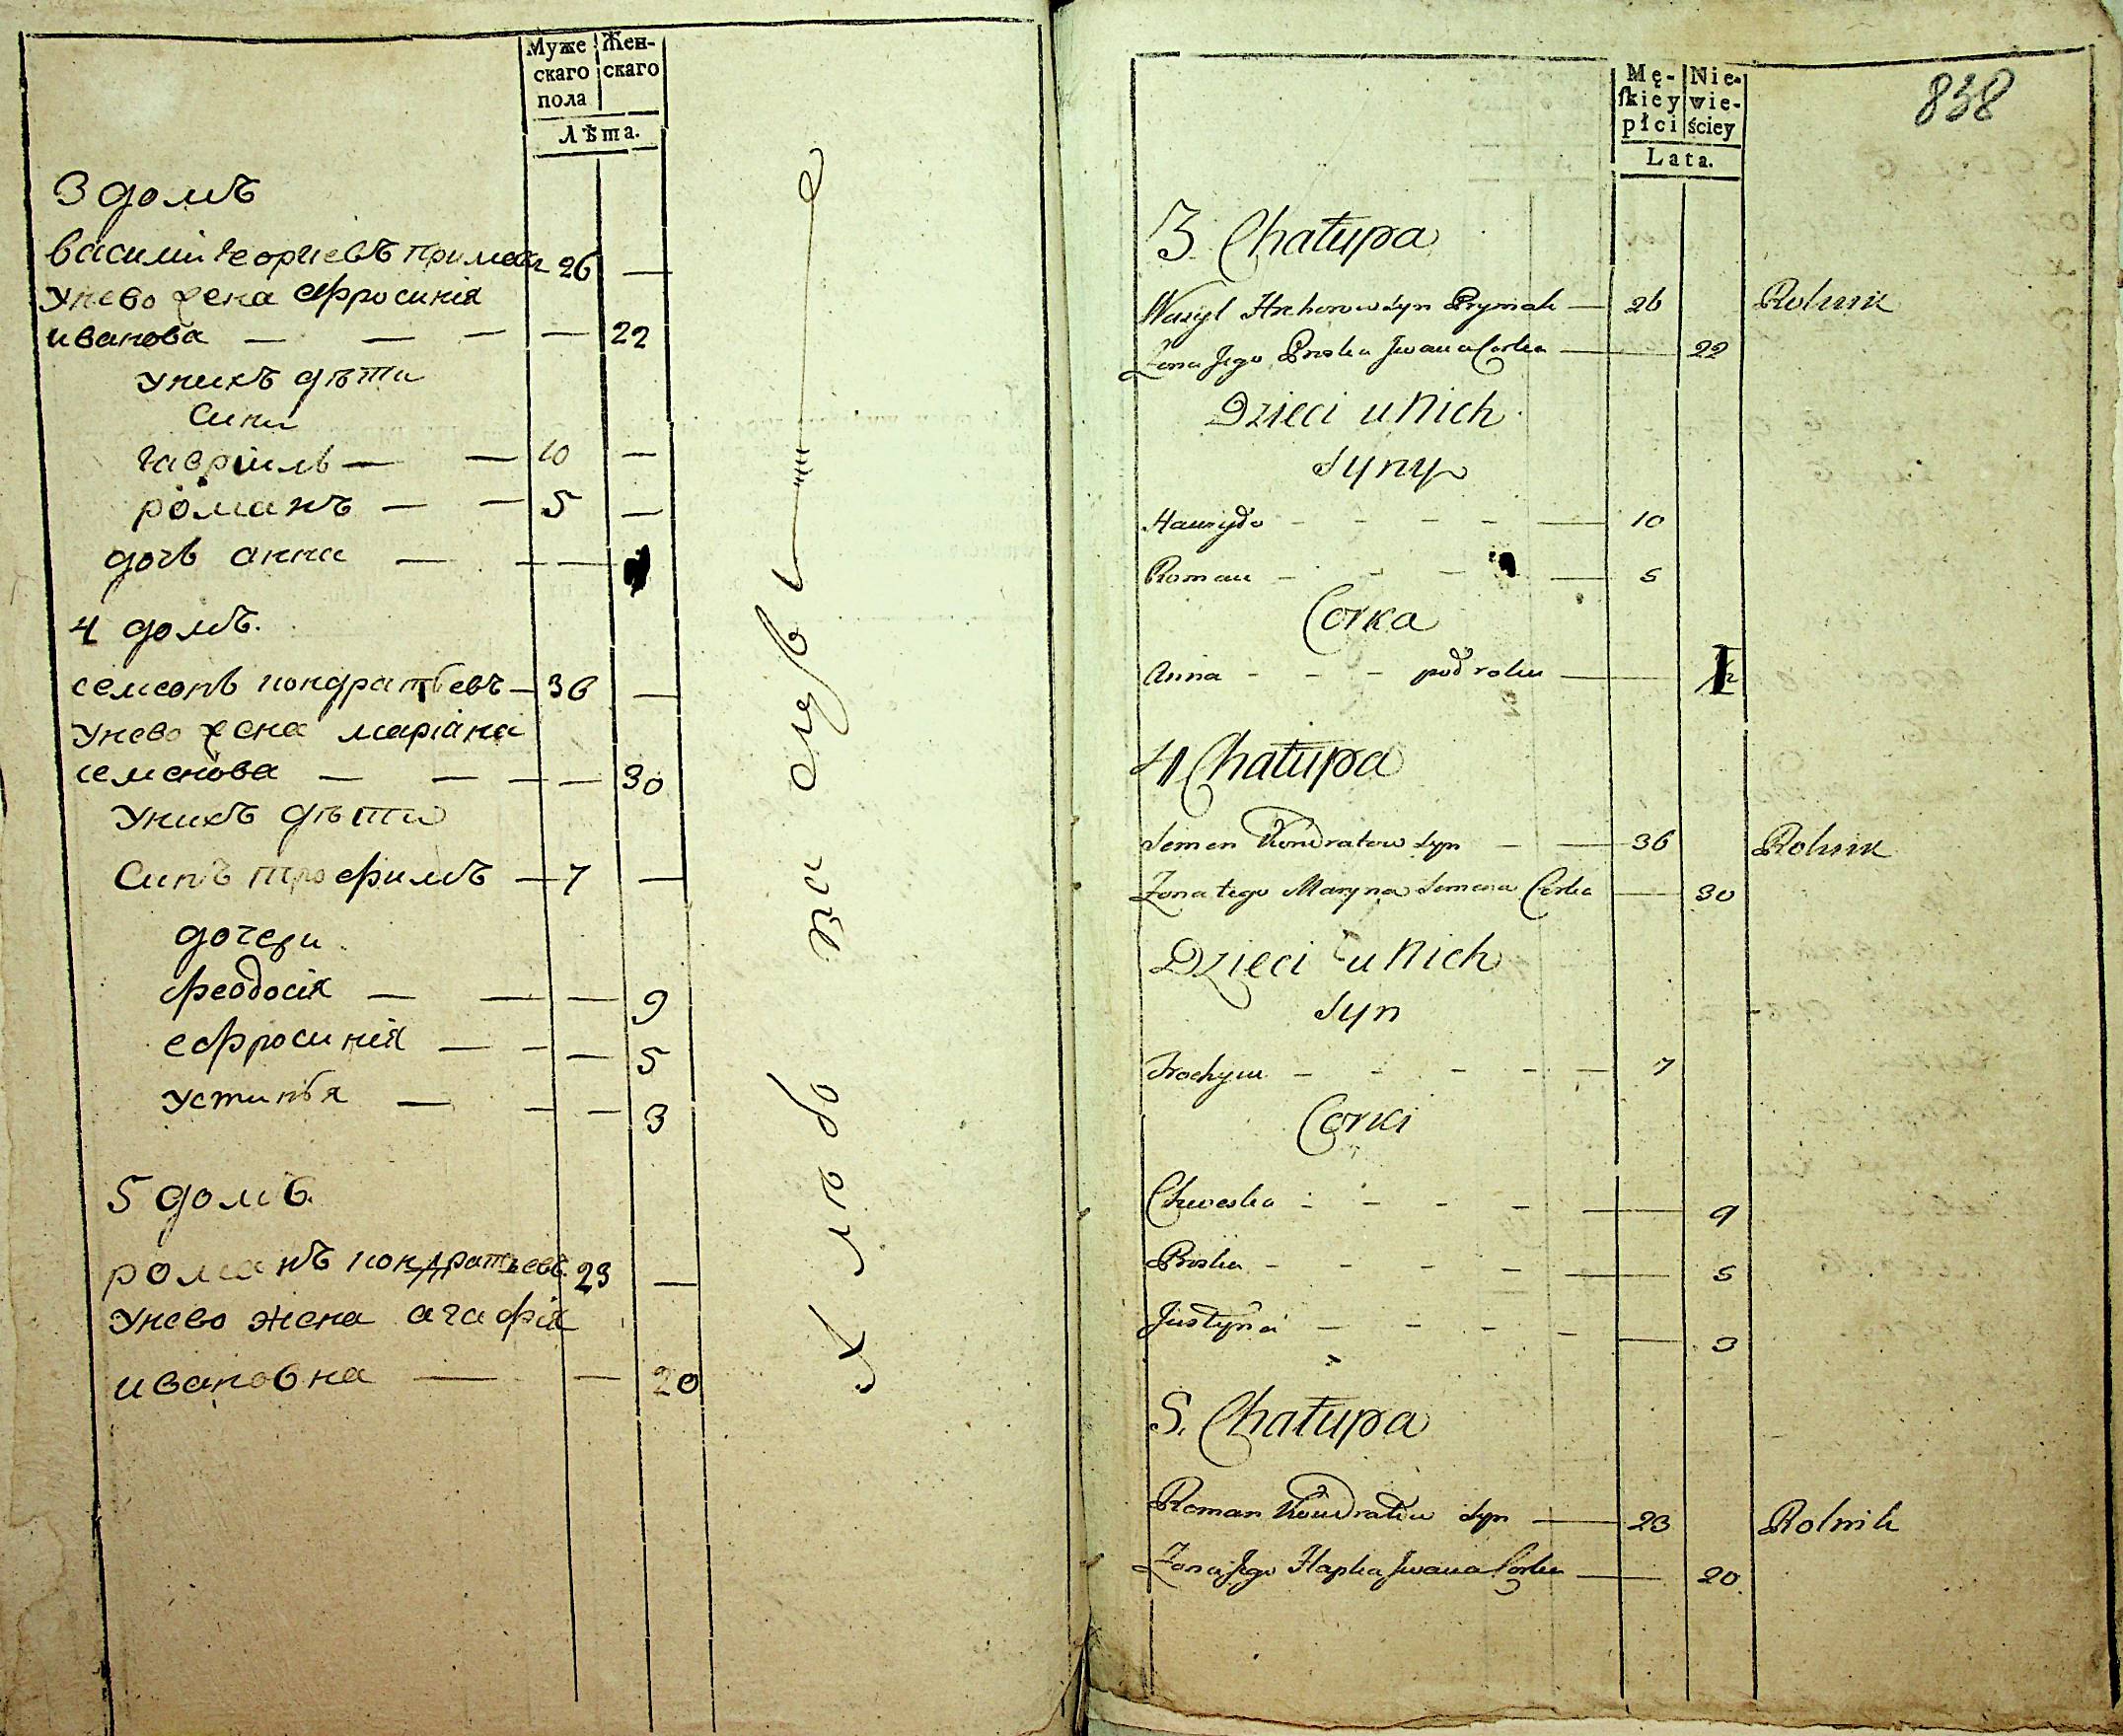 Муже Жен-
скаго скаго
пола
Лѣта.
3 домъ
василий Георгиевъ примакъ 26 —
Унево жена ефросиния
иванова — — — — 22
Унихъ дѣти
Сини
гавриилъ — — 10 —
романъ — — 5 —
дочь анна — — —
4 домъ.
семенъ кондратьевъ — 36 —
Унево жена мариана
семенова — — — — 30
Унихъ дѣти
Синъ трофимъ — 7 —
дочери
феодосія — — — 9
ефросинія — — — 5
устинья — — — 3
5 домъ.
романъ кондратьевъ 23 —
Унево жена агафія
ивановна — — 20
Mę- Nie-
ſkiey wie-
płci ściey
Lata.
838
3. Chałupa
Wasyl Hrehorow Syn Prymak — 26 Rolnik
Żona Jego Pryska Jwana Corka — 22
Dzieci u Nich
Syny
Hawryło - - - - — 10
Roman - - - — 5
Corka
Anna - - - pod roku —
4 Chałupa
Semen Kondratow Syn - — 36 Rolnik
Żona tego Maryna Semena Corka — 30
Dzieci u Nich
Syn
Trochym - - - - — 7
Corki
Chweska - - - - — 9
Pryska - - - - — 5
Justyna - - - - — 3
5. Chałupa
Roman Kondratiw Syn — 23 Rolnik
Żona Jego Hapka Jwana Corka — 20